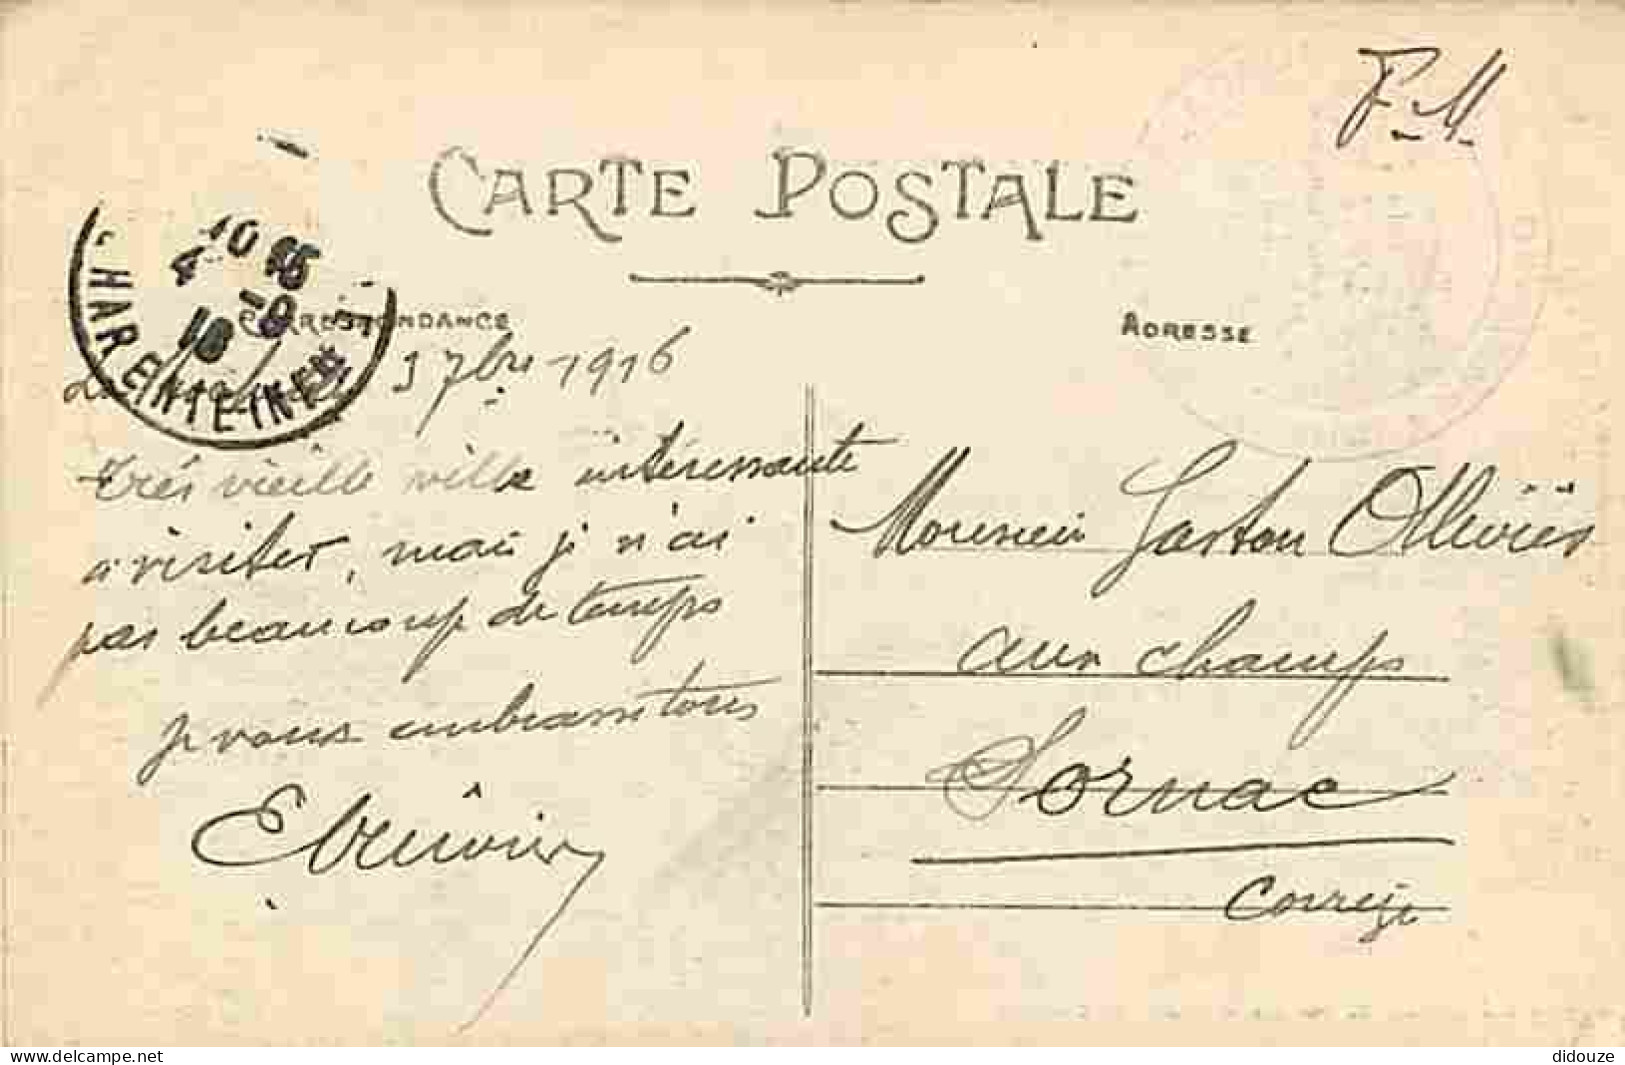 F. M.
CARTE POSTALE
CORRESPONDANCE
ADRESSE
3 7bre 1916
Très vieille ville intéressante
a visiter, mais je n'ai
pas beaucoup de temps
je vous embrasse tous
Monsieur Gaston Ollivier
aux champs
Sornac
Corrèze
CHARENTE INFRE
delcampe.net
didouze